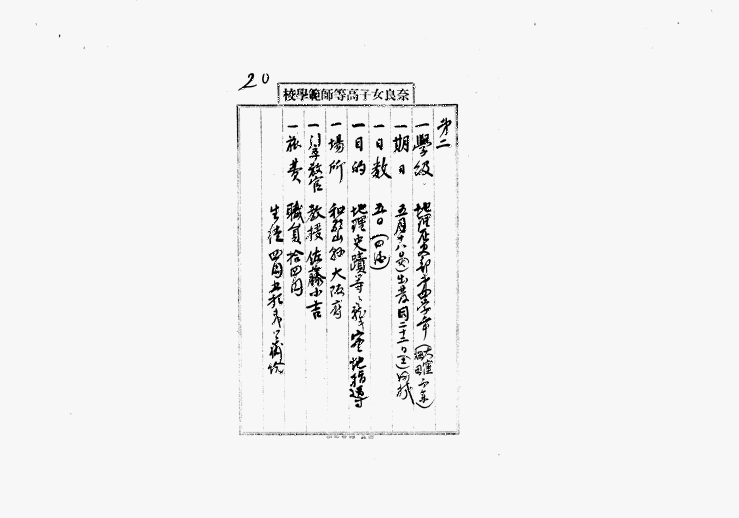 20
奈良女子高等師範學校
第二
一學級 地理歴史部第四学年
一期日 五月十八日出発同二十二日
一日数 五日
一目的 地理史蹟等 実地指導
一場所 和歌山縣大阪府
一引率教官 教授佐藤小吉
一旅費 職員拾四円
生徒四円五拾